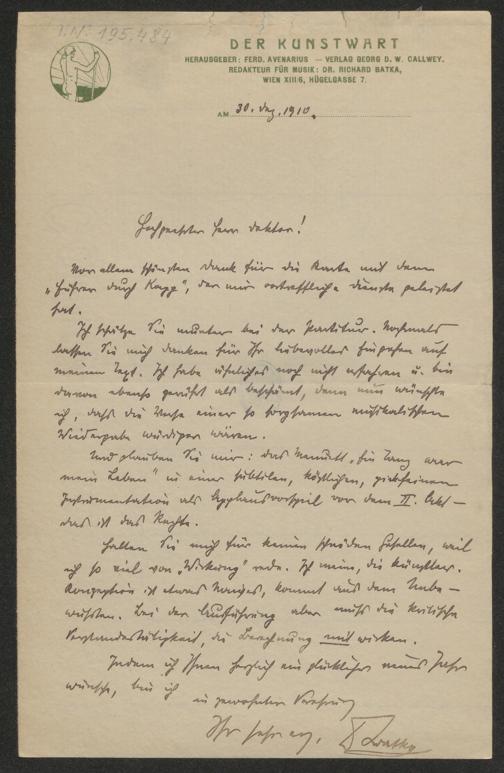 I.N. 195.484
DER KUNSTWART
HERAUSGEBER: FERD. AVENARIUS — VERLAG GEORG D. W. CALLWEY.
REDAKTEUR FÜR MUSIK: DR. RICHARD BATKA,
WIEN XIII/6, HÜGELGASSE 7.
AM 30. Dez. 1910.
Hochgeehrter Herr Doktor!
Vor allem schönsten Dank für die Karte mit dem
"Führer durch Kapp", der mir vortreffliche Dienste geleistet
hat.
Ich schätze Sie munter bei der Partitur. Nochmals
lassen Sie mich danken für Ihr liebevolles Eingehen auf
meinen Text. Ich habe ähnliches noch nicht erfahren u. bin
davon ebenso gerührt als beschämt, denn nun wünschte
ich, daß die Verse einer so sorgsamen musikalischen
Wiedergabe würdiger wären.
Und glauben Sie mir: das Menuett "Ein Tanz war
mein Leben" in einer subtilen, köstlichen, pickfeinen
Instrumentation als Applausvorspiel vor dem II. Akt —
das ist das Rechte.
Halten Sie mich für keinen schnöden Gesellen, weil
ich so viel von "Wirkung" rede. Ich meine, die künstler.
Konzeption ist etwas Naives, kommt aus dem Unbe-
wußten. Bei der Ausführung aber muß die kritische
Verstandestätigkeit, die Berechnung mit wirken.
Indem ich Ihnen herzlich ein glückliches neues Jahr
wünsche, bin ich
in gewohnter Verehrung
Ihr sehr erg.
RBatka